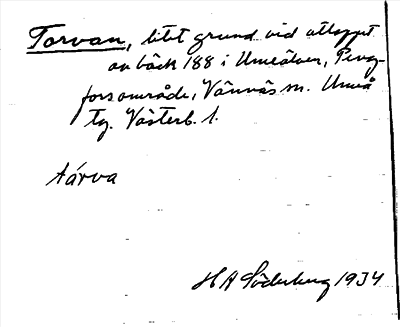 Torvan, litet grund vid utloppet
av bäck 188 i Umeälven, Peng-
forsområde, Vännäs sn. Umeå
tg. Västerb. l.
tárva
H A Söderberg 1934